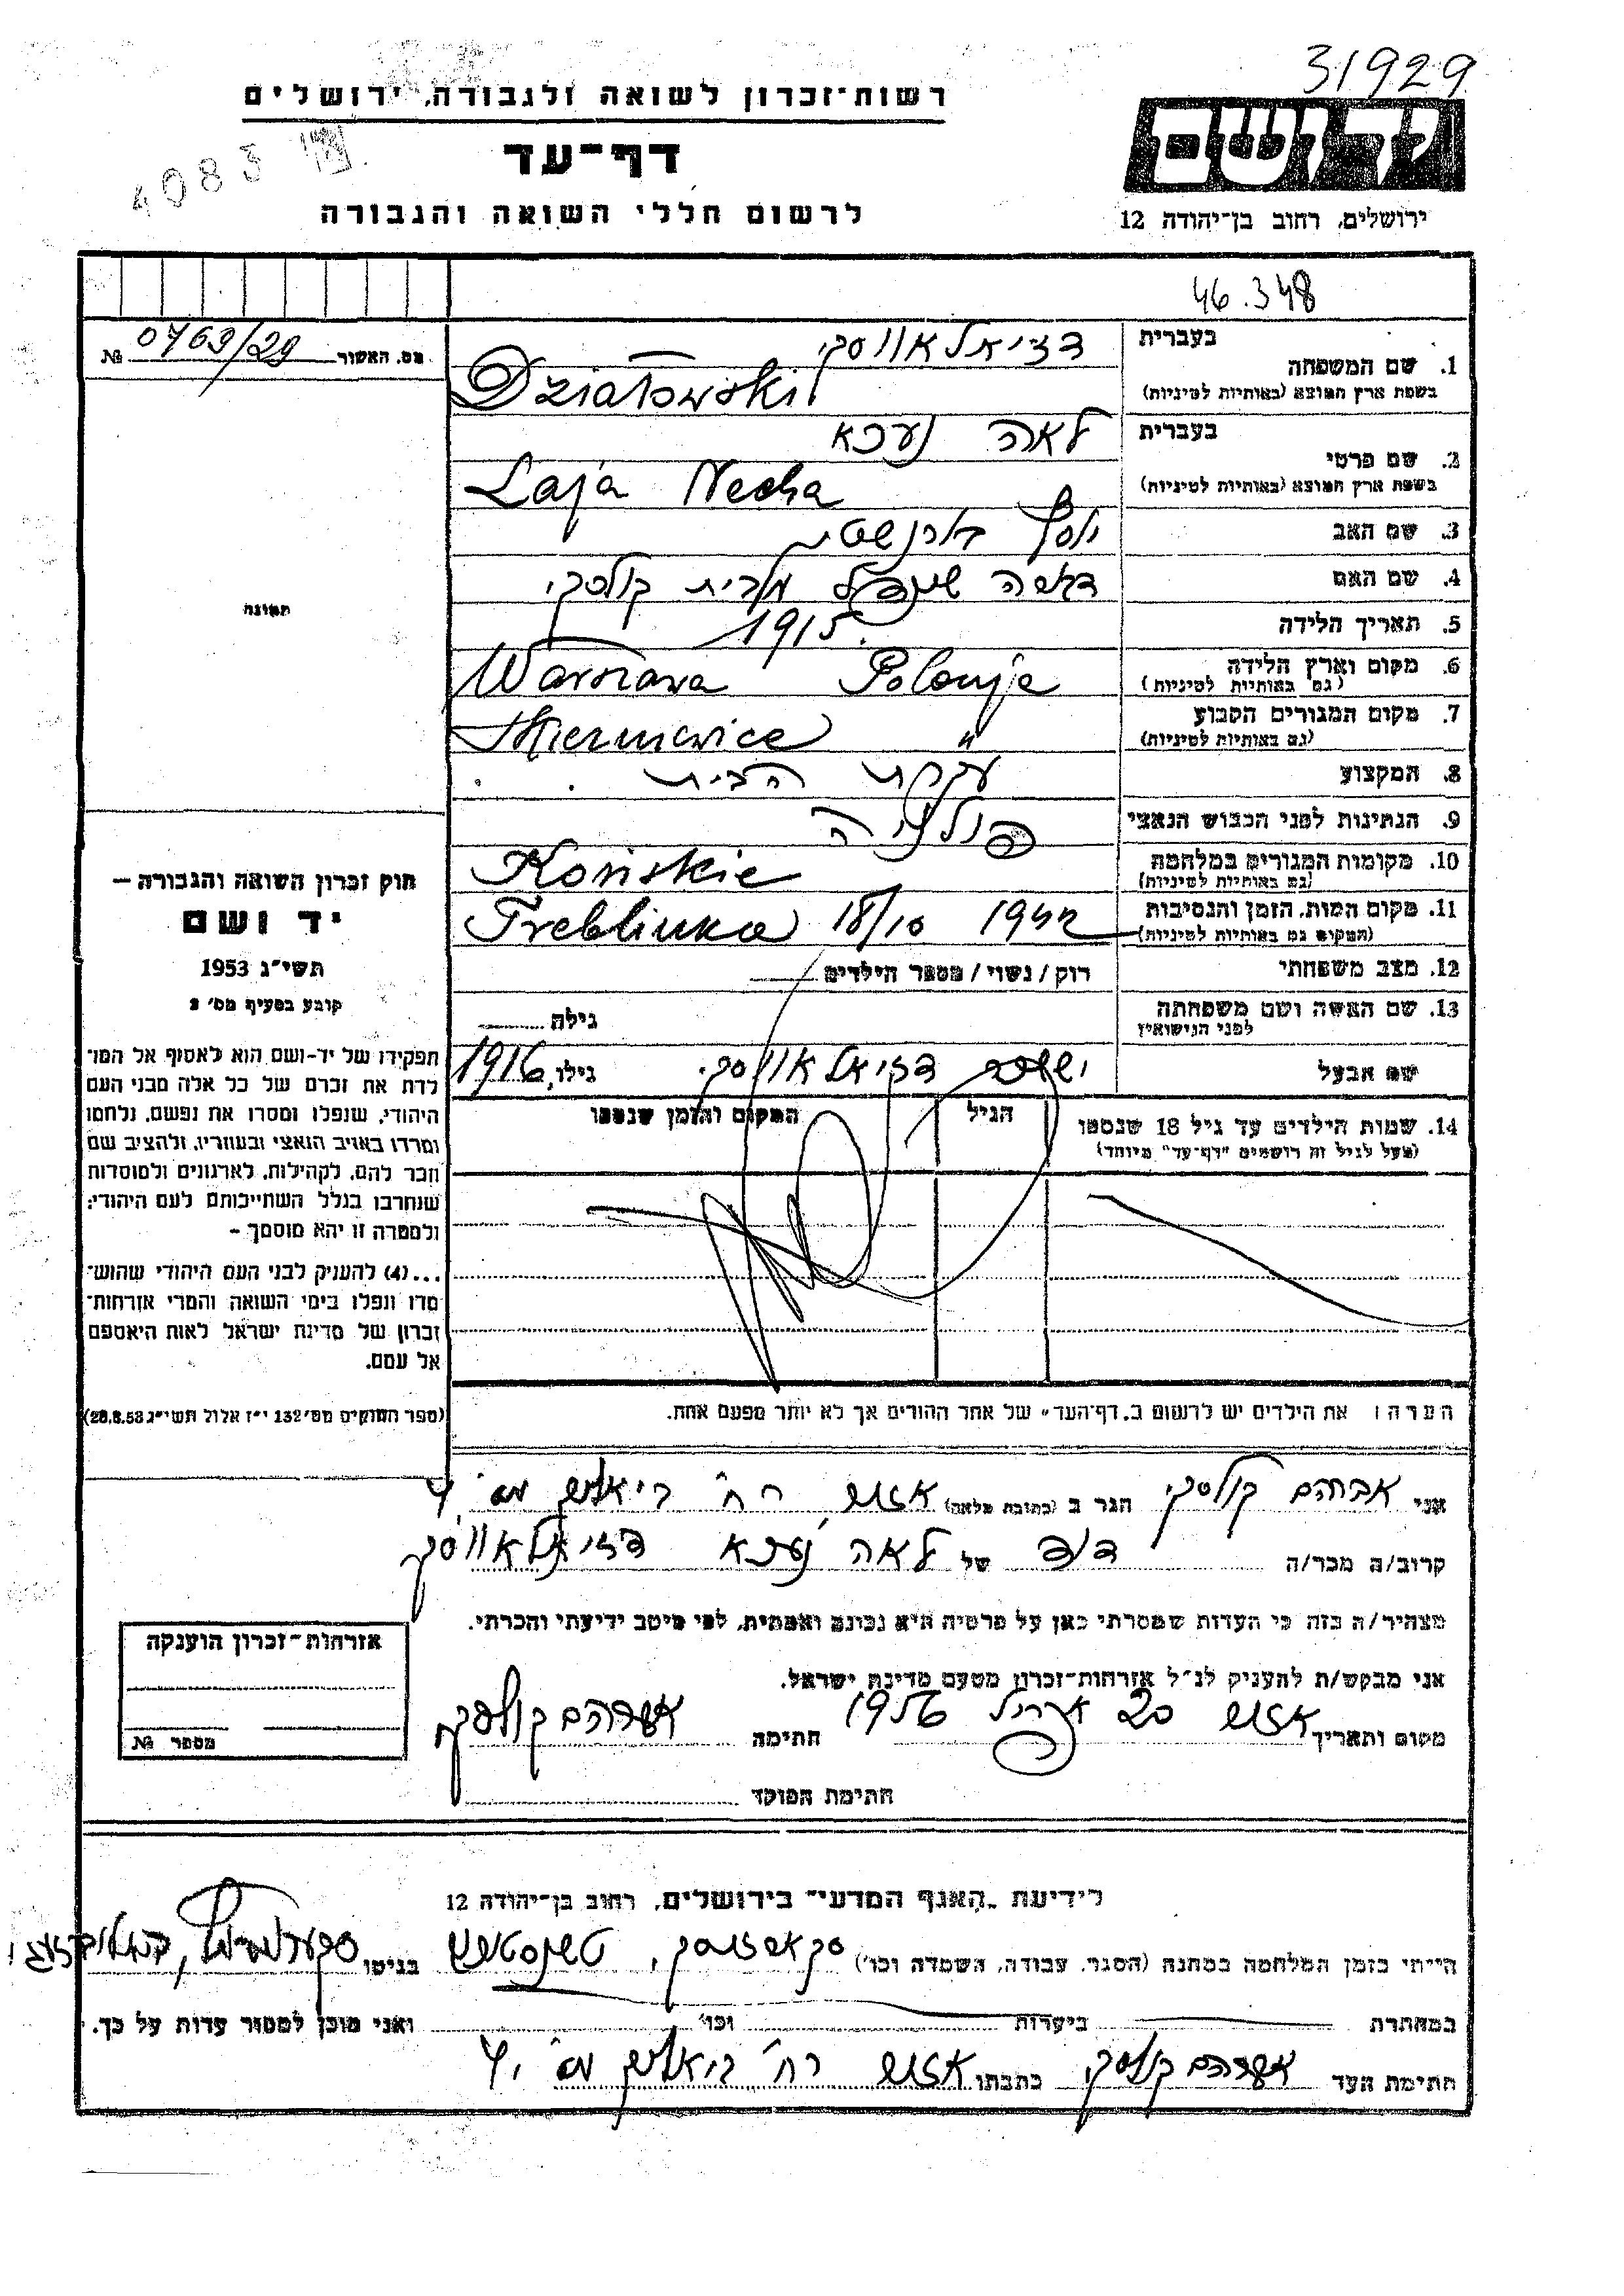 31929
רשות־זכרון לשואה ולגבורה, ירושלים
דף־עד
לרשום חללי השואה והגבורה
4083
יד ושם
ירושלים, רחוב בן־יהודה 12
46.348
מס. האשור 0763/29 №
1. שם המשפחה
בעברית
דזיאלאווסקי
בשפת ארץ המוצא (באותיות לטיניות)
Dziatowski
2. שם פרטי
בעברית
לאה נעכא
בשפת ארץ המוצא (באותיות לטיניות)
Laja Necha
3. שם האב יוסף
4. שם האם מבית קולסקי
5. תאריך הלידה 1915.
6. מקום וארץ הלידה Warszawa Polonja
(גם באותיות לטיניות)
7. מקום המגורים הקבוע Skierniewice "
(גם באותיות לטיניות)
8. המקצוע עקרת הבית
9. הנתינות לפני הכבוש הנאצי פולניה
10. מקומות המגורים במלחמה Końskie
(גם באותיות לטיניות)
11. מקום המות, הזמן והנסיבות Treblinka 18/10 1942
(המקום גם באותיות לטיניות)
12. מצב משפחתי רוק / נשוי / מספר הילדים
13. שם האשה ושם משפחתה
לפני הנישואין
גילה
שם אבעל דזיאלאווסקי גילו, 1916
14. שמות הילדים עד גיל 18 שנספו
(מעל לגיל זה רושמים "דף־עד" מיוחד)
הגיל
המקום והזמן שנספו
הערה: את הילדים יש לרשום ב„דף־העד" של אחד ההורים אך לא יותר מפעם אחת.
תמונה
חוק זכרון השואה והגבורה —
יד ושם
תשי"ג 1953
קובע בסעיף מס' 2
תפקידו של יד-ושם הוא לאסוף אל המו־
לדת את זכרם של כל אלה מבני העם
היהודי, שנפלו ומסרו את נפשם, נלחמו
ומרדו באויב הנאצי ובעוזריו, ולהציב שם
וזכר להם, לקהילות, לארגונים ולמוסדות
שנחרבו בגלל השתייכותם לעם היהודי;
ולמטרה זו יהא מוסמך –
...(4) להעניק לבני העם היהודי שהוש־
מדו ונפלו בימי השואה והמרי אזרחות־
זכרון של מדינת ישראל לאות היאספם
אל עמם.
(ספר החוקים מס' 132 י"ז אלול תשי"ג 28.8.53)
אני אברהם קולסקי הגר ב (כתובת מלאה) אזור רח' ביאליק מס' 4
קרוב/ה מכר/ה דוד של לאה נעכא דזיאלאווסקי
מצהיר/ה בזה כי העדות שמסרתי כאן על פרטיה היא נכונה ואמתית, לפי מיטב ידיעתי והכרתי.
אני מבקש/ת להעניק לנ"ל אזרחות־זכרון מטעם מדינת ישראל.
מקום ותאריך אזור 20 אפריל 1956 חתימה אברהם קולסקי
חתימת הפוקד
אזרחות־זכרון הוענקה
מספר №
לידיעת „האגף המדעי" בירושלים, רחוב בן־יהודה 12
הייתי בזמן המלחמה במחנה (הסגר, עבודה, השמדה וכו')
בגיטו
במחתרת ביערות וכו' ואני מוכן למסור עדות על כך.
חתימת העד אברהם קולסקי כתבתו אזור רח' ביאליק מס' 4